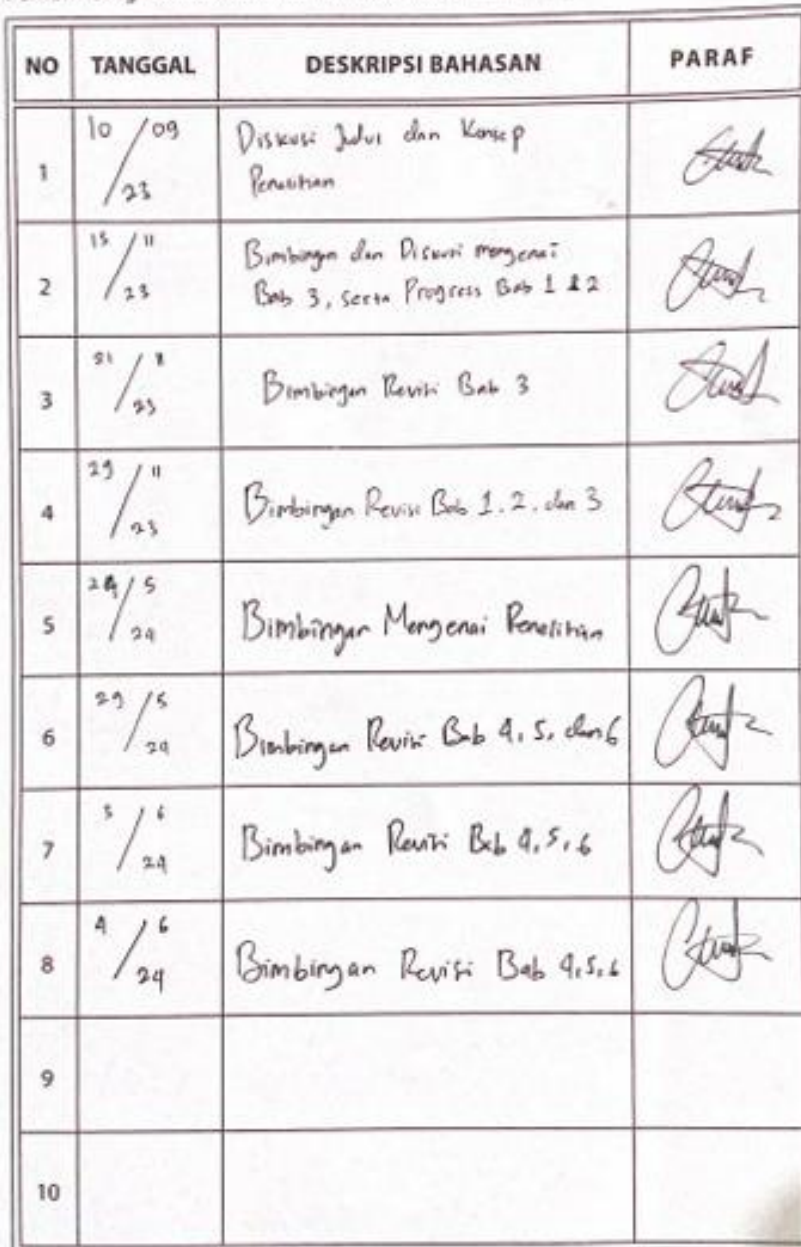 NO TANGGAL DESKRIPSI BAHASAN PARAF
1 10/09/23 Diskusi Judul dan Konsep
Penelitian
2 15/11/23 Bimbingan dan Diskusi mengenai
Bab 3, serta Progress Bab 1 & 2
3 /23 Bimbingan Revisi Bab 3
4 29/11/23 Bimbingan Revisi Bab 1, 2, dan 3
5 /5/24 Bimbingan Mengenai Penelitian
6 29/5/24 Bimbingan Revisi Bab 4, 5, dan 6
7 /6/24 Bimbingan Revisi Bab 4, 5, 6
8 4/6/24 Bimbingan Revisi Bab 4, 5, 6
9
10